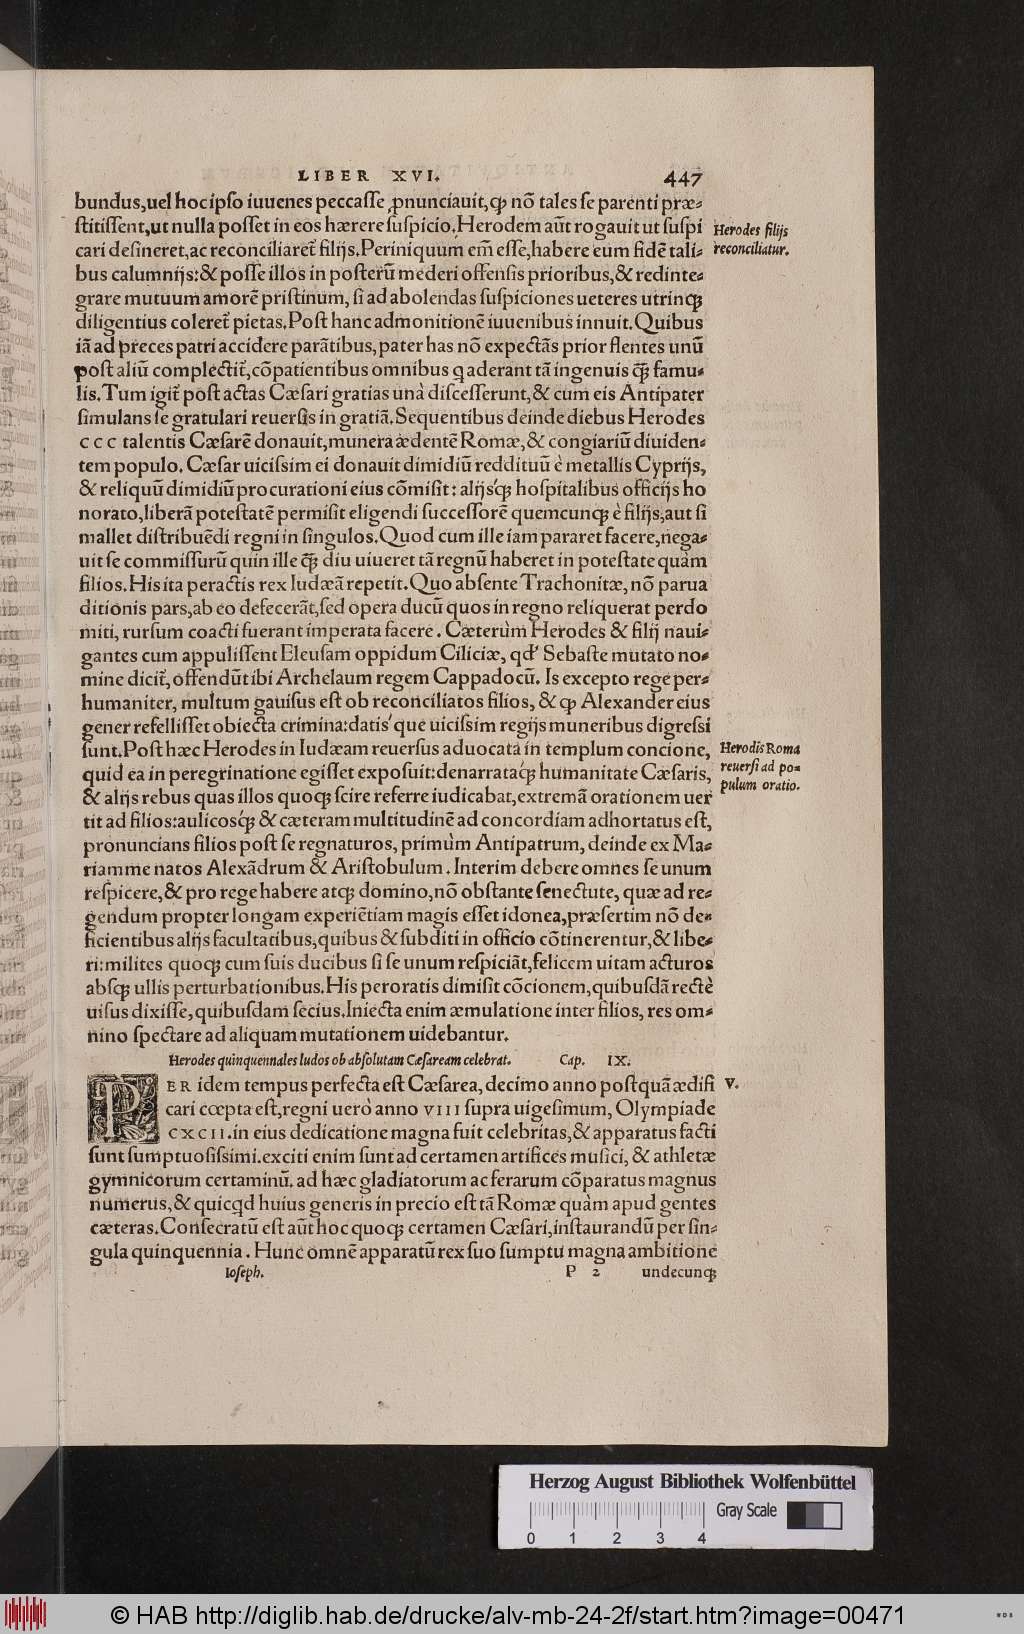 LIBER XVI. 447
bundus,uel hoc ipſo iuuenes peccaſſe ꝓnunciauit,ꝙ nõ tales ſe parenti præ-
ſtitiſſent,ut nulla poſſet in eos hærere ſuſpicio.Herodem aũt rogauit ut ſuſpi
cari deſineret,ac reconciliaret̃ filijs.Periniquum em̃ eſſe,habere eum fidẽ tali-
bus calumnijs:& poſſe illos in poſterũ mederi offenſis prioribus,& redinte-
grare mutuum amorẽ priſtinum, ſi ad abolendas ſuſpiciones ueteres utrinqꝫ
diligentius coleret̃ pietas.Poſt hanc admonitionẽ iuuenibus innuit.Quibus
iã ad preces patri accidere parãtibus,pater has nõ expectãs prior flentes unũ
poſt aliũ complectit̃,cõpatientibus omnibus q aderant tã ingenuis q̃ꝫ famu-
lis.Tum igit̃ poſt actas Cæſari gratias unà diſceſſerunt,& cum eis Antipater
ſimulans ſe gratulari reuerſis in gratiã.Sequentibus deinde diebus Herodes
CCC talentis Cæſarẽ donauit,munera ædentẽ Romæ,& congiariũ diuiden-
tem populo. Cæſar uiciſſim ei donauit dimidiũ reddituũ è metallis Cyprijs,
& reliquũ dimidiũ procurationi eius cõmiſit: alijsq́ꝫ hoſpitalibus officijs ho
norato,liberã poteſtatẽ permiſit eligendi ſucceſſorẽ quemcunqꝫ è filijs,aut ſi
mallet diſtribuẽdi regni in ſingulos.Quod cum ille iam pararet facere,nega-
uit ſe commiſſurũ quin ille q̃ꝫ diu uiueret tã regnũ haberet in poteſtate quàm
filios.His ita peractis rex Iudæã repetit.Quo abſente Trachonitæ, nõ parua
ditionis pars,ab eo defecerãt,ſed opera ducũ quos in regno reliquerat perdo
miti, rurſum coacti fuerant imperata facere. Cæterùm Herodes & filij naui-
gantes cum appuliſſent Eleuſam oppidum Ciliciæ, qd' Sebaſte mutato no-
mine dicit̃, offendũt ibi Archelaum regem Cappadocũ. Is excepto rege per-
humaniter, multum gauiſus eſt ob reconciliatos filios, & ꝙ Alexander eius
gener refelliſſet obiecta crimina:datis'que uiciſſim regijs muneribus digreſſi
ſunt.Poſt hæc Herodes in Iudæam reuerſus aduocata in templum concione,
quid ea in peregrinatione egiſſet expoſuit:denarrataq́ꝫ humanitate Cæſaris,
& alijs rebus quas illos quoqꝫ ſcire referre iudicabat,extremã orationem uer
tit ad filios:aulicosq́ꝫ & cæteram multitudinẽ ad concordiam adhortatus eſt,
pronuncians filios poſt ſe regnaturos, primùm Antipatrum, deinde ex Ma-
riamme natos Alexãdrum & Ariſtobulum. Interim debere omnes ſe unum
reſpicere,& pro rege habere atqꝫ domino,nõ obſtante ſenectute, quæ ad re-
gendum propter longam experiẽtiam magis eſſet idonea,præſertim nõ de-
ficientibus alijs facultatibus,quibus & ſubditi in officio cõtinerentur,& libe-
ri:milites quoqꝫ cum ſuis ducibus ſi ſe unum reſpiciãt,felicem uitam acturos
abſqꝫ ullis perturbationibus.His peroratis dimiſit cõcionem,quibuſdã rectè
uiſus dixiſſe,quibuſdam ſecius.Iniecta enim æmulatione inter filios, res om-
nino ſpectare ad aliquam mutationem uidebantur.
Herodes filijs
reconciliatur.
Herodis Roma
reuerſi ad po-
pulum oratio.
Herodes quinquennales ludos ob abſolutam Cæſaream celebrat. Cap. IX.
PER idem tempus perfecta eſt Cæſarea, decimo anno poſtquã ædifi V.
cari cœpta eſt,regni uerò anno VIII ſupra uigeſimum, Olympiade
CXCII.in eius dedicatione magna fuit celebritas,& apparatus facti
ſunt ſumptuoſiſſimi.exciti enim ſunt ad certamen artifices muſici, & athletæ
gymnicorum certaminũ. ad hæc gladiatorum ac ferarum cõparatus magnus
numerus,& quicqd huius generis in precio eſt tã Romæ quàm apud gentes
cæteras.Conſecratũ eſt aũt hoc quoqꝫ certamen Cæſari,inſtaurandũ per ſin-
gula quinquennia. Hunc omnẽ apparatũ rex ſuo ſumptu magna ambitione
Ioſeph. P 2 undecunqꝫ
Herzog August Bibliothek Wolfenbüttel
Gray Scale
0 1 2 3 4
© HAB http://diglib.hab.de/drucke/alv-mb-24-2f/start.htm?image=00471